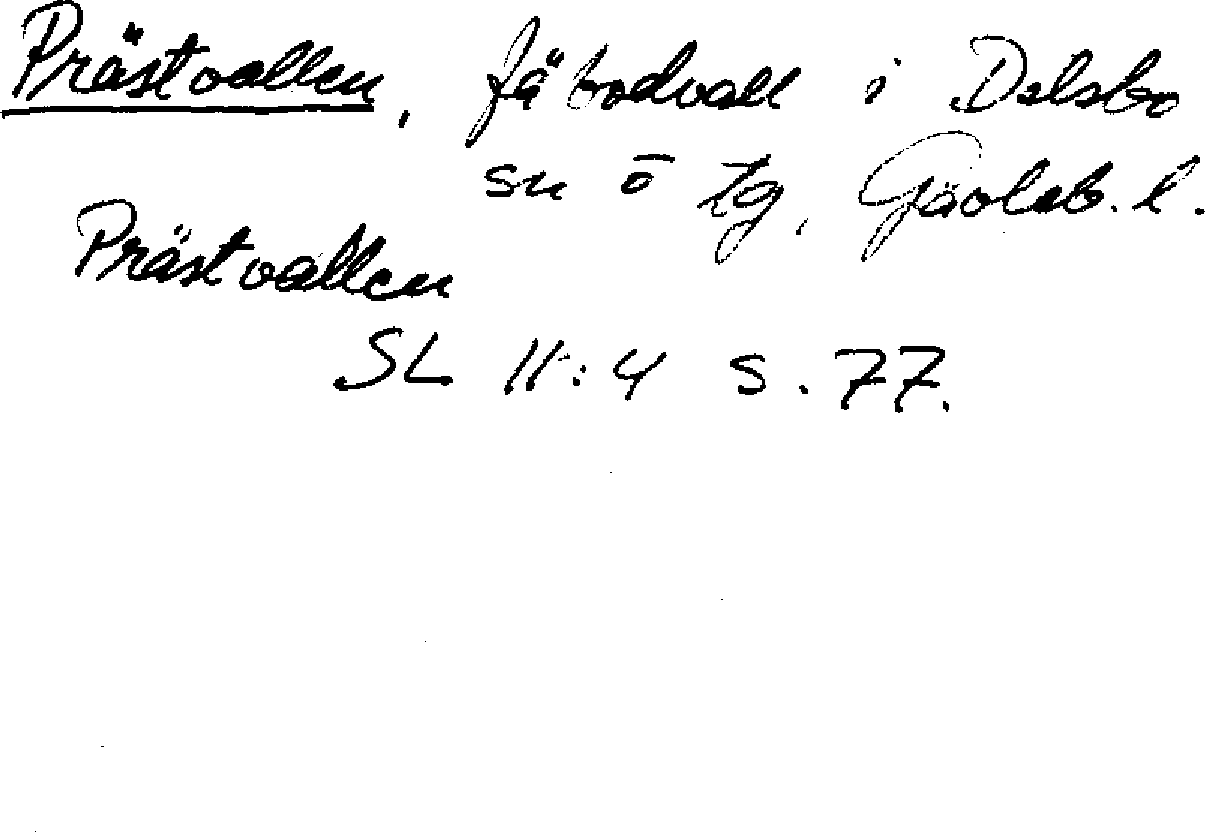 Prästvallen, fäbodvall i Delsbo
sn o tg, Gävleb. l.
Prästvallen
SL II:4 s. 77.